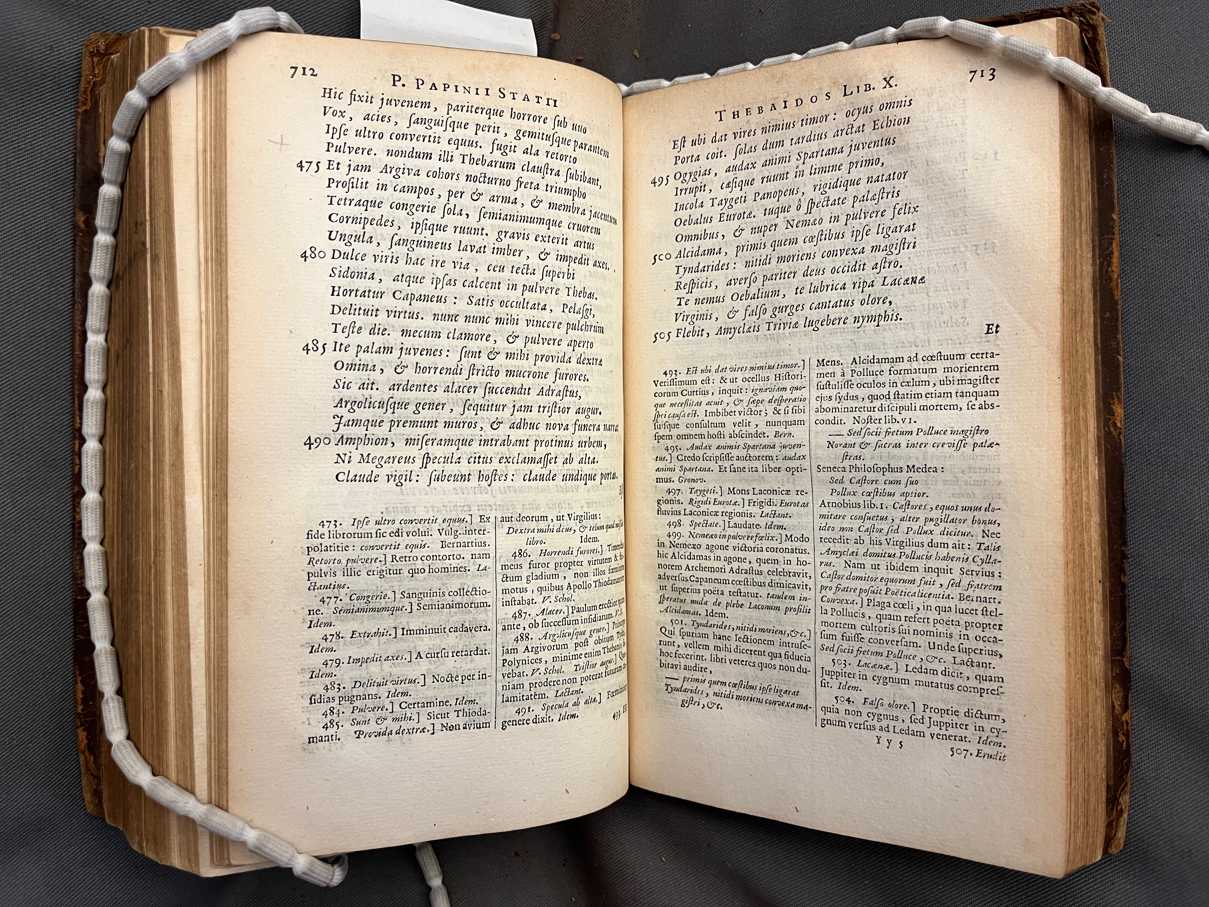 712
P. PAPINII STATII
Hic fixit juvenem, pariterque horrore sub uno
Vox, acies, sanguisque perit, gemitusque parantem
Ipse ultro convertit equus. fugit ala retorto
Pulvere. nondum illi Thebarum claustra subibant,
475 Et jam Argiva cohors nocturno freta triumpho
Prosilit in campos, per & arma, & membra jacentum
Tetraque congerie sola, semianimumque cruorem
Cornipedes, ipsique ruunt. gravis exterit artus
Ungula, sanguineus lavat imber, & impedit axes.
480 Dulce viris hac ire via, ceu tecta superbi
Sidonia, atque ipsas calcent in pulvere Thebas.
Hortatur Capaneus: Satis occultata, Pelasgi,
Delituit virtus. nunc nunc mihi vincere pulchrum
Teste die. mecum clamore, & pulvere aperto
485 Ite palam juvenes: sunt & mihi provida dextræ
Omina, & horrendi stricto mucrone furores.
Sic ait. ardentes alacer succendit Adrastus,
Argolicusque gener, sequitur jam tristior augur.
Jamque premunt muros, & adhuc nova funera narrat
490 Amphion, miseramque intrabant protinus urbem,
Ni Megareus specula citus exclamasset ab alta.
Claude vigil: subeunt hostes: claude undique portas.
473. Ipse ultro convertit equus.] Ex
fide librorum sic edi volui. Vulg. inter-
polatitie: convertit equis. Bernartius.
Retorto pulvere.] Retro contorto. nam
pulvis illic erigitur quo homines. La-
ctantius.
477. Congerie.] Sanguinis collectio-
ne. Semianimumque.] Semianimorum.
Idem.
478. Extrahit.] Imminuit cadavera.
Idem.
479. Impedit axes.] A cursu retardat.
Idem.
483. Delituit virtus.] Nocte per in-
sidias pugnans. Idem.
484. Pulvere.] Certamine. Idem.
485. Sunt & mihi.] Sicut Thioda-
manti. Provida dextræ.] Non avium
aut deorum, ut Virgilius:
Dextra mihi deus, & telum quod missile
libro. Idem.
486. Horrendi furores.]
meus furor propter virtutem &
ctum gladium, non illos
motus, quibus Apollo Thiodamant
instabat. V. Schol.
487. Alacer.] Paulum erectior quam
ante, ob successum insidiarum. V. S.
488. Argolicusque gener.]
jam Argivorum post obitum Tydei
Polynices, minime enim Thebanis
vebat. V. Schol. Tristior augur.]
niam prodere non poterat futuram
lamitatem. Lactant.
491. Specula ab alta.]
genere dixit. Idem.
THEBAIDOS LIB. X.
713
Est ubi dat vires nimius timor: ocyus omnis
Porta coit. solas dum tardius arctat Echion
495 Ogygias, audax animi Spartana juventus
Irrupit, cæsique ruunt in limine primo,
Incola Taygeti Panopeus, rigidique natator
Oebalus Eurotæ. tuque ô spectate palæstris
Omnibus, & nuper Nemæo in pulvere felix
500 Alcidama, primis quem cæstibus ipse ligarat
Tyndarides: nitidi moriens convexa magistri
Respicis, averso pariter deus occidit astro.
Te nemus Oebalium, te lubrica ripa Lacænæ
Virginis, & falso gurges cantatus olore,
505 Flebit, Amyclæis Triviæ lugebere nymphis.
Et
493. Est ubi dat vires nimius timor.]
Verissimum est: & ut ocellus Histori-
corum Curtius, inquit: ignaviam quo-
que necessitas acuit, & sæpe desperatio
spei causa est. Imbibet victor; & si sibi
suisque consultum velit, nunquam
spem omnem hosti abscindet. Bern.
495. Audax animis Spartana juven-
tus.] Credo scripsisse auctorem: audax
animi Spartana. Et sane ita liber opti-
mus. Gronov.
497. Taygeti.] Mons Laconicæ re-
gionis. Rigidi Eurotæ.] Frigidi. Eurotas
fluvius Laconicæ regionis. Lactant.
498. Spectate.] Laudate. Idem.
499. Nemæo in pulvere fœlix.] Modo
in Nemæo agone victoria coronatus.
hic Alcidamas in agone, quem in ho-
norem Archemori Adrastus celebravit,
adversus Capaneum cœstibus dimicavit,
ut superius poëta testatur. tandem in-
speratus nuda de plebe Laconum prosilit
Alcidamas. Idem.
501. Tyndarides, nitidi moriens, &c.]
Qui spuriam hanc lectionem intruse-
runt, vellem mihi dicerent qua fiducia
hoc fecerint. libri veteres quos non du-
bitavi audire,
— primis quem cœstibus ipse ligarat
Tyndarides, nitidi moriens convexa ma-
gistri, &c.
Mens. Alcidamam ad cœstuum certa-
men à Polluce formatum morientem
sustulisse oculos in cælum, ubi magister
ejus sydus, quod statim etiam tanquam
abominaretur discipuli mortem, se abs-
condit. Noster lib. VI.
— Sed socii fretum Polluce magistro
Norant & sacras inter crevisse palæ-
stras.
Seneca Philosophus Medea:
Sed Castore cum suo
Pollux cæstibus aptior.
Arnobius lib. 1. Castores, equos unus do-
mitare consuetus, alter pugillator bonus,
ideo mn Castor sed Pollux dicitur. Nec
recedit ab his Virgilius dum ait: Talis
Amyclæi domitus Pollucis habenis Cylla-
rus. Nam ut ibidem inquit Servius:
Castor domitor equorum fuit, sed fratrem
pro fratre posuit Poëtica licentia. Bernart.
Convexa.] Plaga cœli, in qua lucet stel-
la Pollucis, quam refert poëta propter
mortem cultoris sui nominis in occa-
sum fuisse conversam. Unde superius,
Sed socii fretum Polluce, &c. Lactant.
503. Lacænæ.] Ledam dicit, quam
Juppiter in cygnum mutatus compres-
sit. Idem.
504. Falso olore.] Proprie dictum,
quia non cygnus, sed Juppiter in cy-
gnum versus ad Ledam venerat. Idem.
Yy 5
507. Erudit